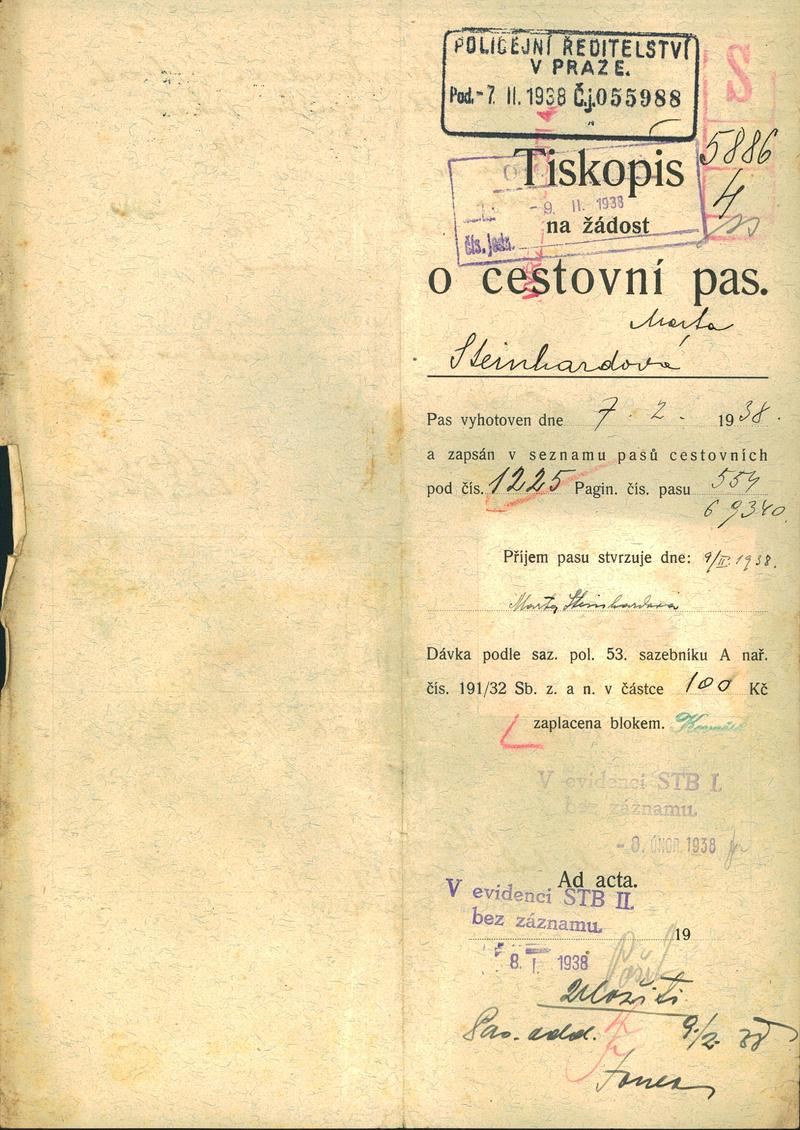 POLICEJNÍ ŘEDITELSTVÍ
V PRAZE.
Pod. -7. II. 1938 Č.j. 055988
S
5886
4
Tiskopis
-9. II. 1938
na žádost
čís. jedn.
o cestovní pas.
Marta
Steinhardová
Pas vyhotoven dne 7. 2. 1938.
a zapsán v seznamu pasů cestovních
pod čís. 1225 Pagin. čís. pasu 554
69340
Příjem pasu stvrzuje dne: 9/II. 1938.
Marta Steinhardová
Dávka podle saz. pol. 53. sazebníku A nař.
čís. 191/32 Sb. z. a n. v částce 100 Kč
zaplacena blokem.
V evidenci STB I.
bez záznamu.
-8. ÚNOR 1938
Ad acta.
V evidenci STB II.
bez záznamu.
19
8. I. 1938
Uložiti
9./2. 38